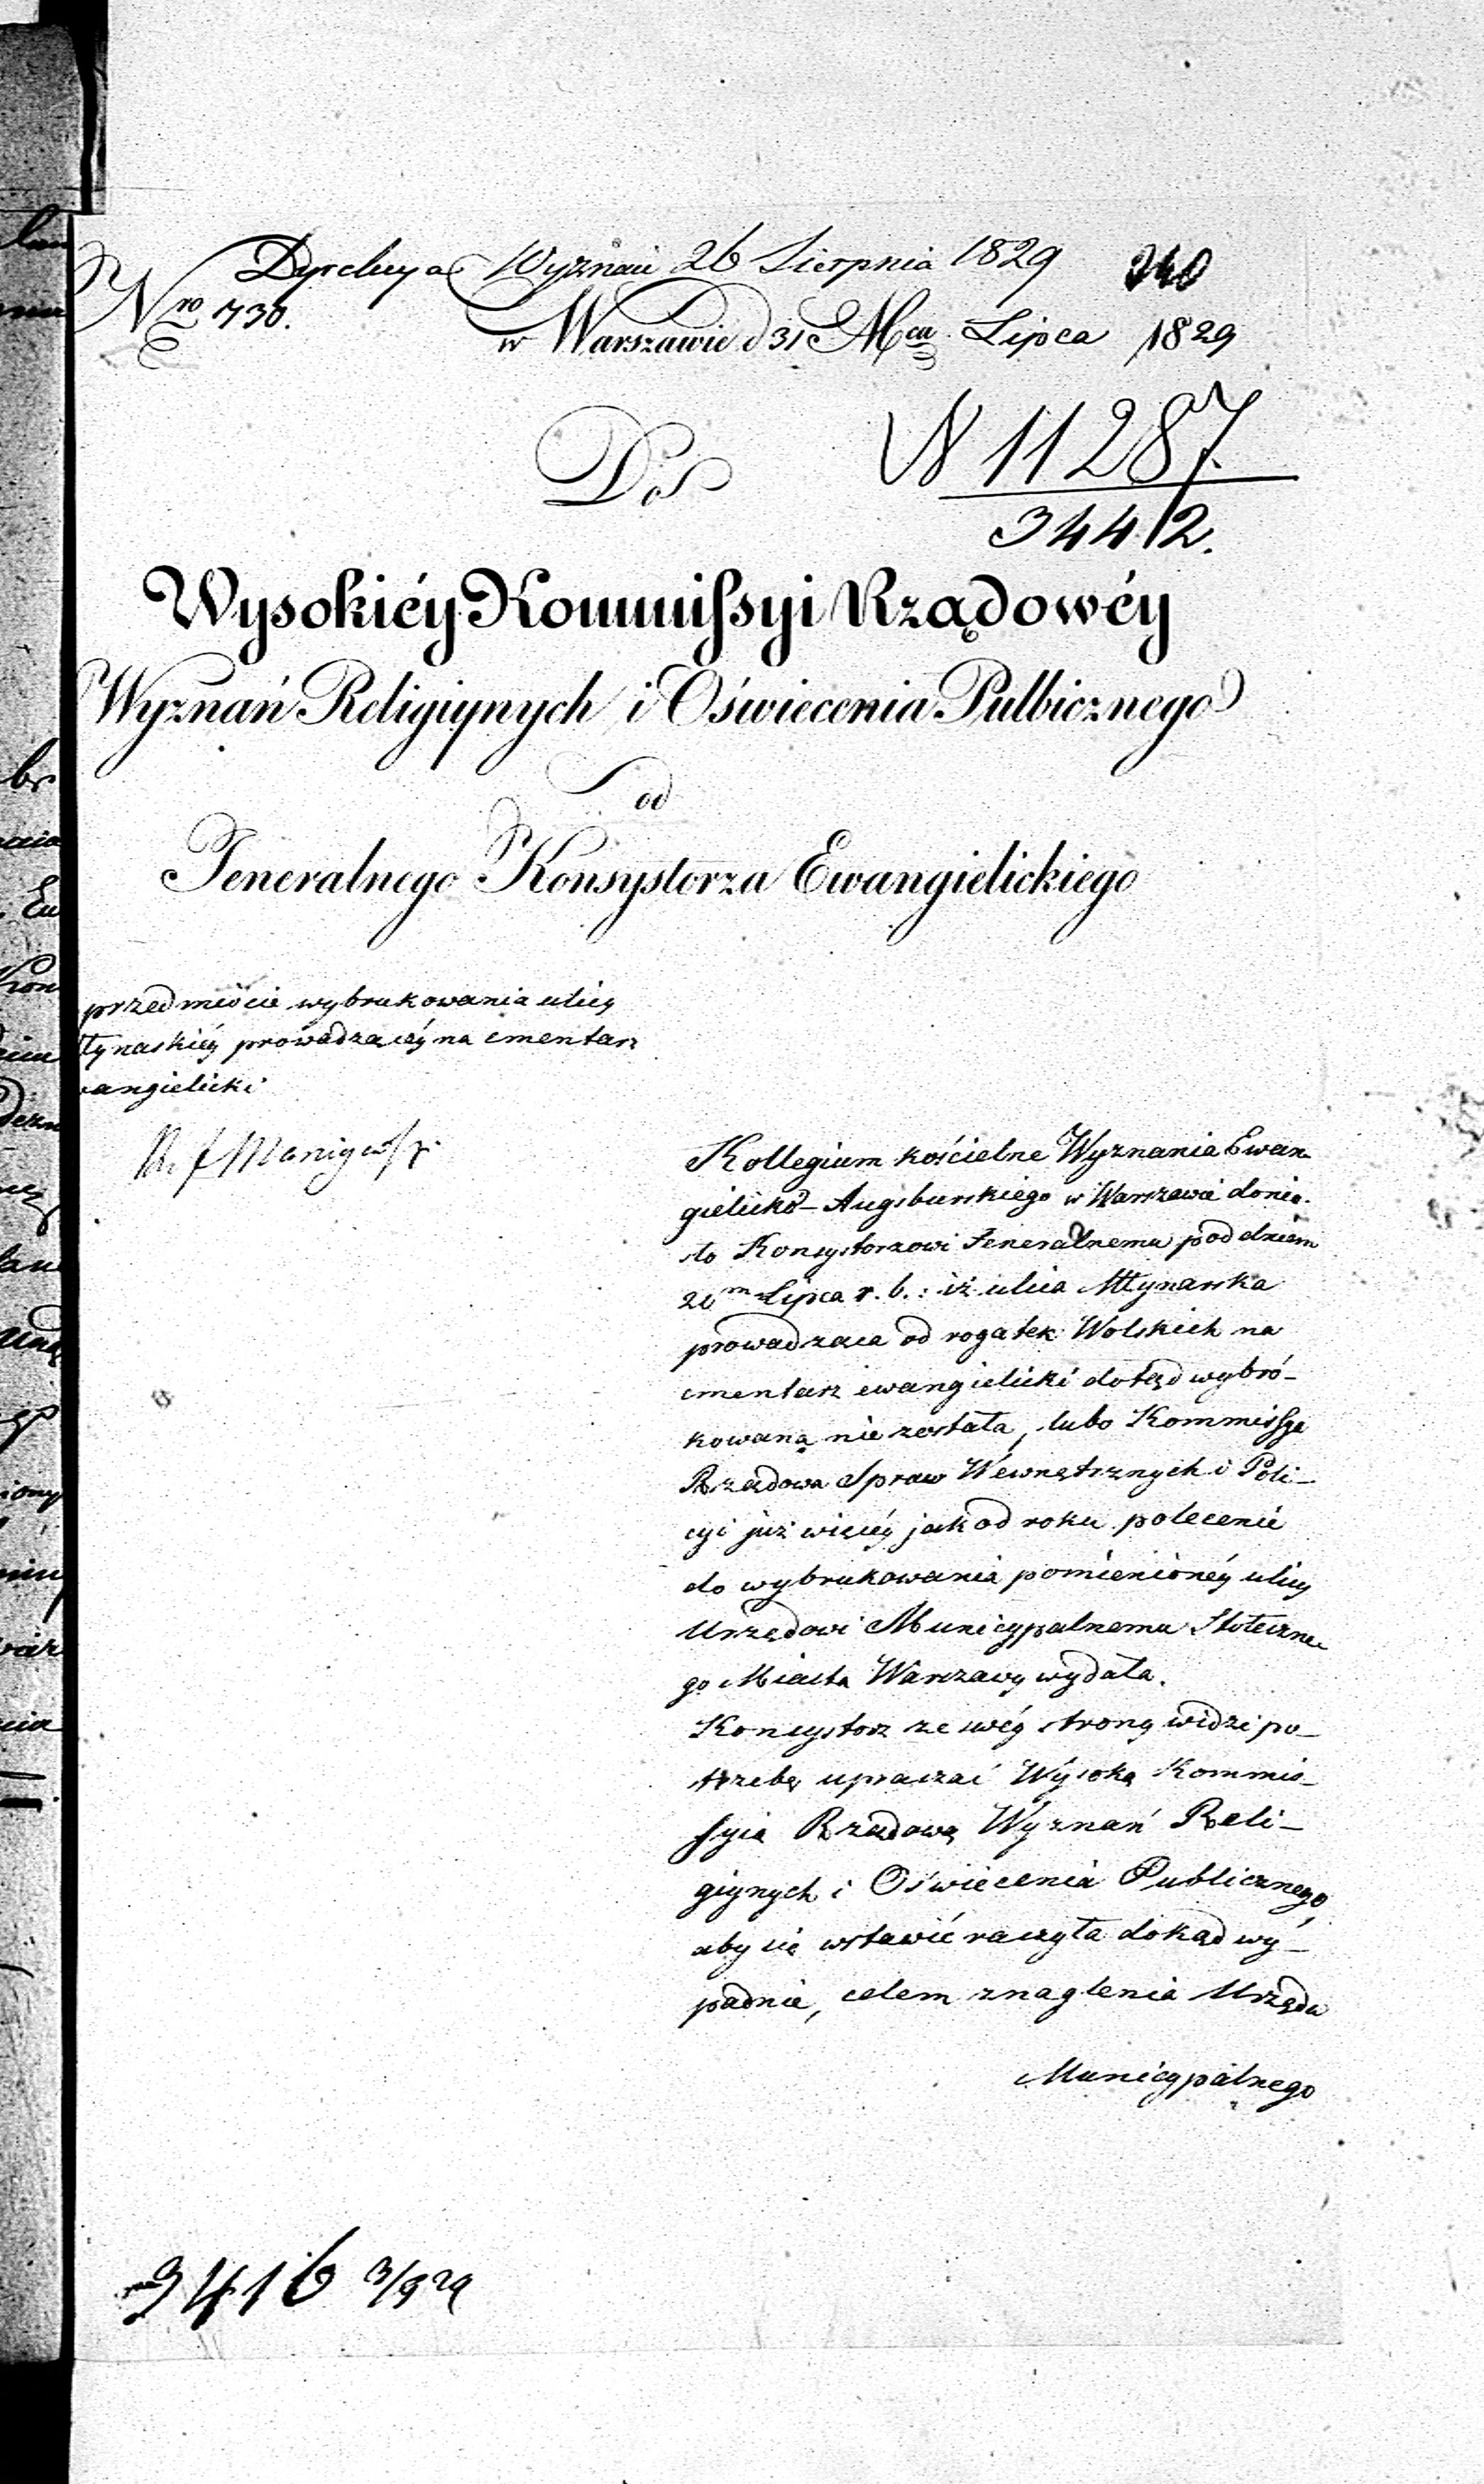 Dyrekcya Wyznań 26 Sierpnia 1829 240
Nro 730.
w Warszawie d 31 Mca Lipca 1829
Do
N 11287.
3442.
Wysokiéy Kommissyi Rządowéy
Wyznań Religiynych i Oświecenia Pulbicznego
od
Jeneralnego Konsystorza Ewangielickiego
przedmiocie wybrukowania ulicy
łynarskiéy prowadzącéy na cmentarz
wangielicki
Kollegium kościelne Wyznania Ewan-
gielicko-Augsburskiego w Warszawie donio-
sło Konsystorzowi Jeneralnemu pod dniem
20m Lipca r. b.: iż ulica Młynarska
prowadząca od rogatek Wolskich na
cmentarz ewangielicki dotąd wybró-
kowaną nie została, lubo Kommissya
Rządowa Spraw Wewnętrznych i Poli-
cyi już więcéy jak od roku polecenie
do wybrukowania pomienionéy ulicy
Urzędowi Municypalnemu Stołeczne-
go Miasta Warszawy wydała.
Konsystorz ze swéy strony widzi po-
trzebę upraszać Wysoką Kommis-
syią Rządową Wyznań Reli-
giynych i Oświecenia Publicznego,
aby się wstawić raczyła dokąd wy-
padnie, celem znaglenia Urzędu
Municypalnego
3416 3/9 29